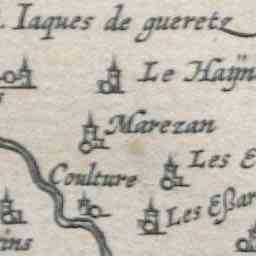 Iaques de gueretz
Le Haÿn
Marezan
Les E
Coulture
Les Eßar
ins